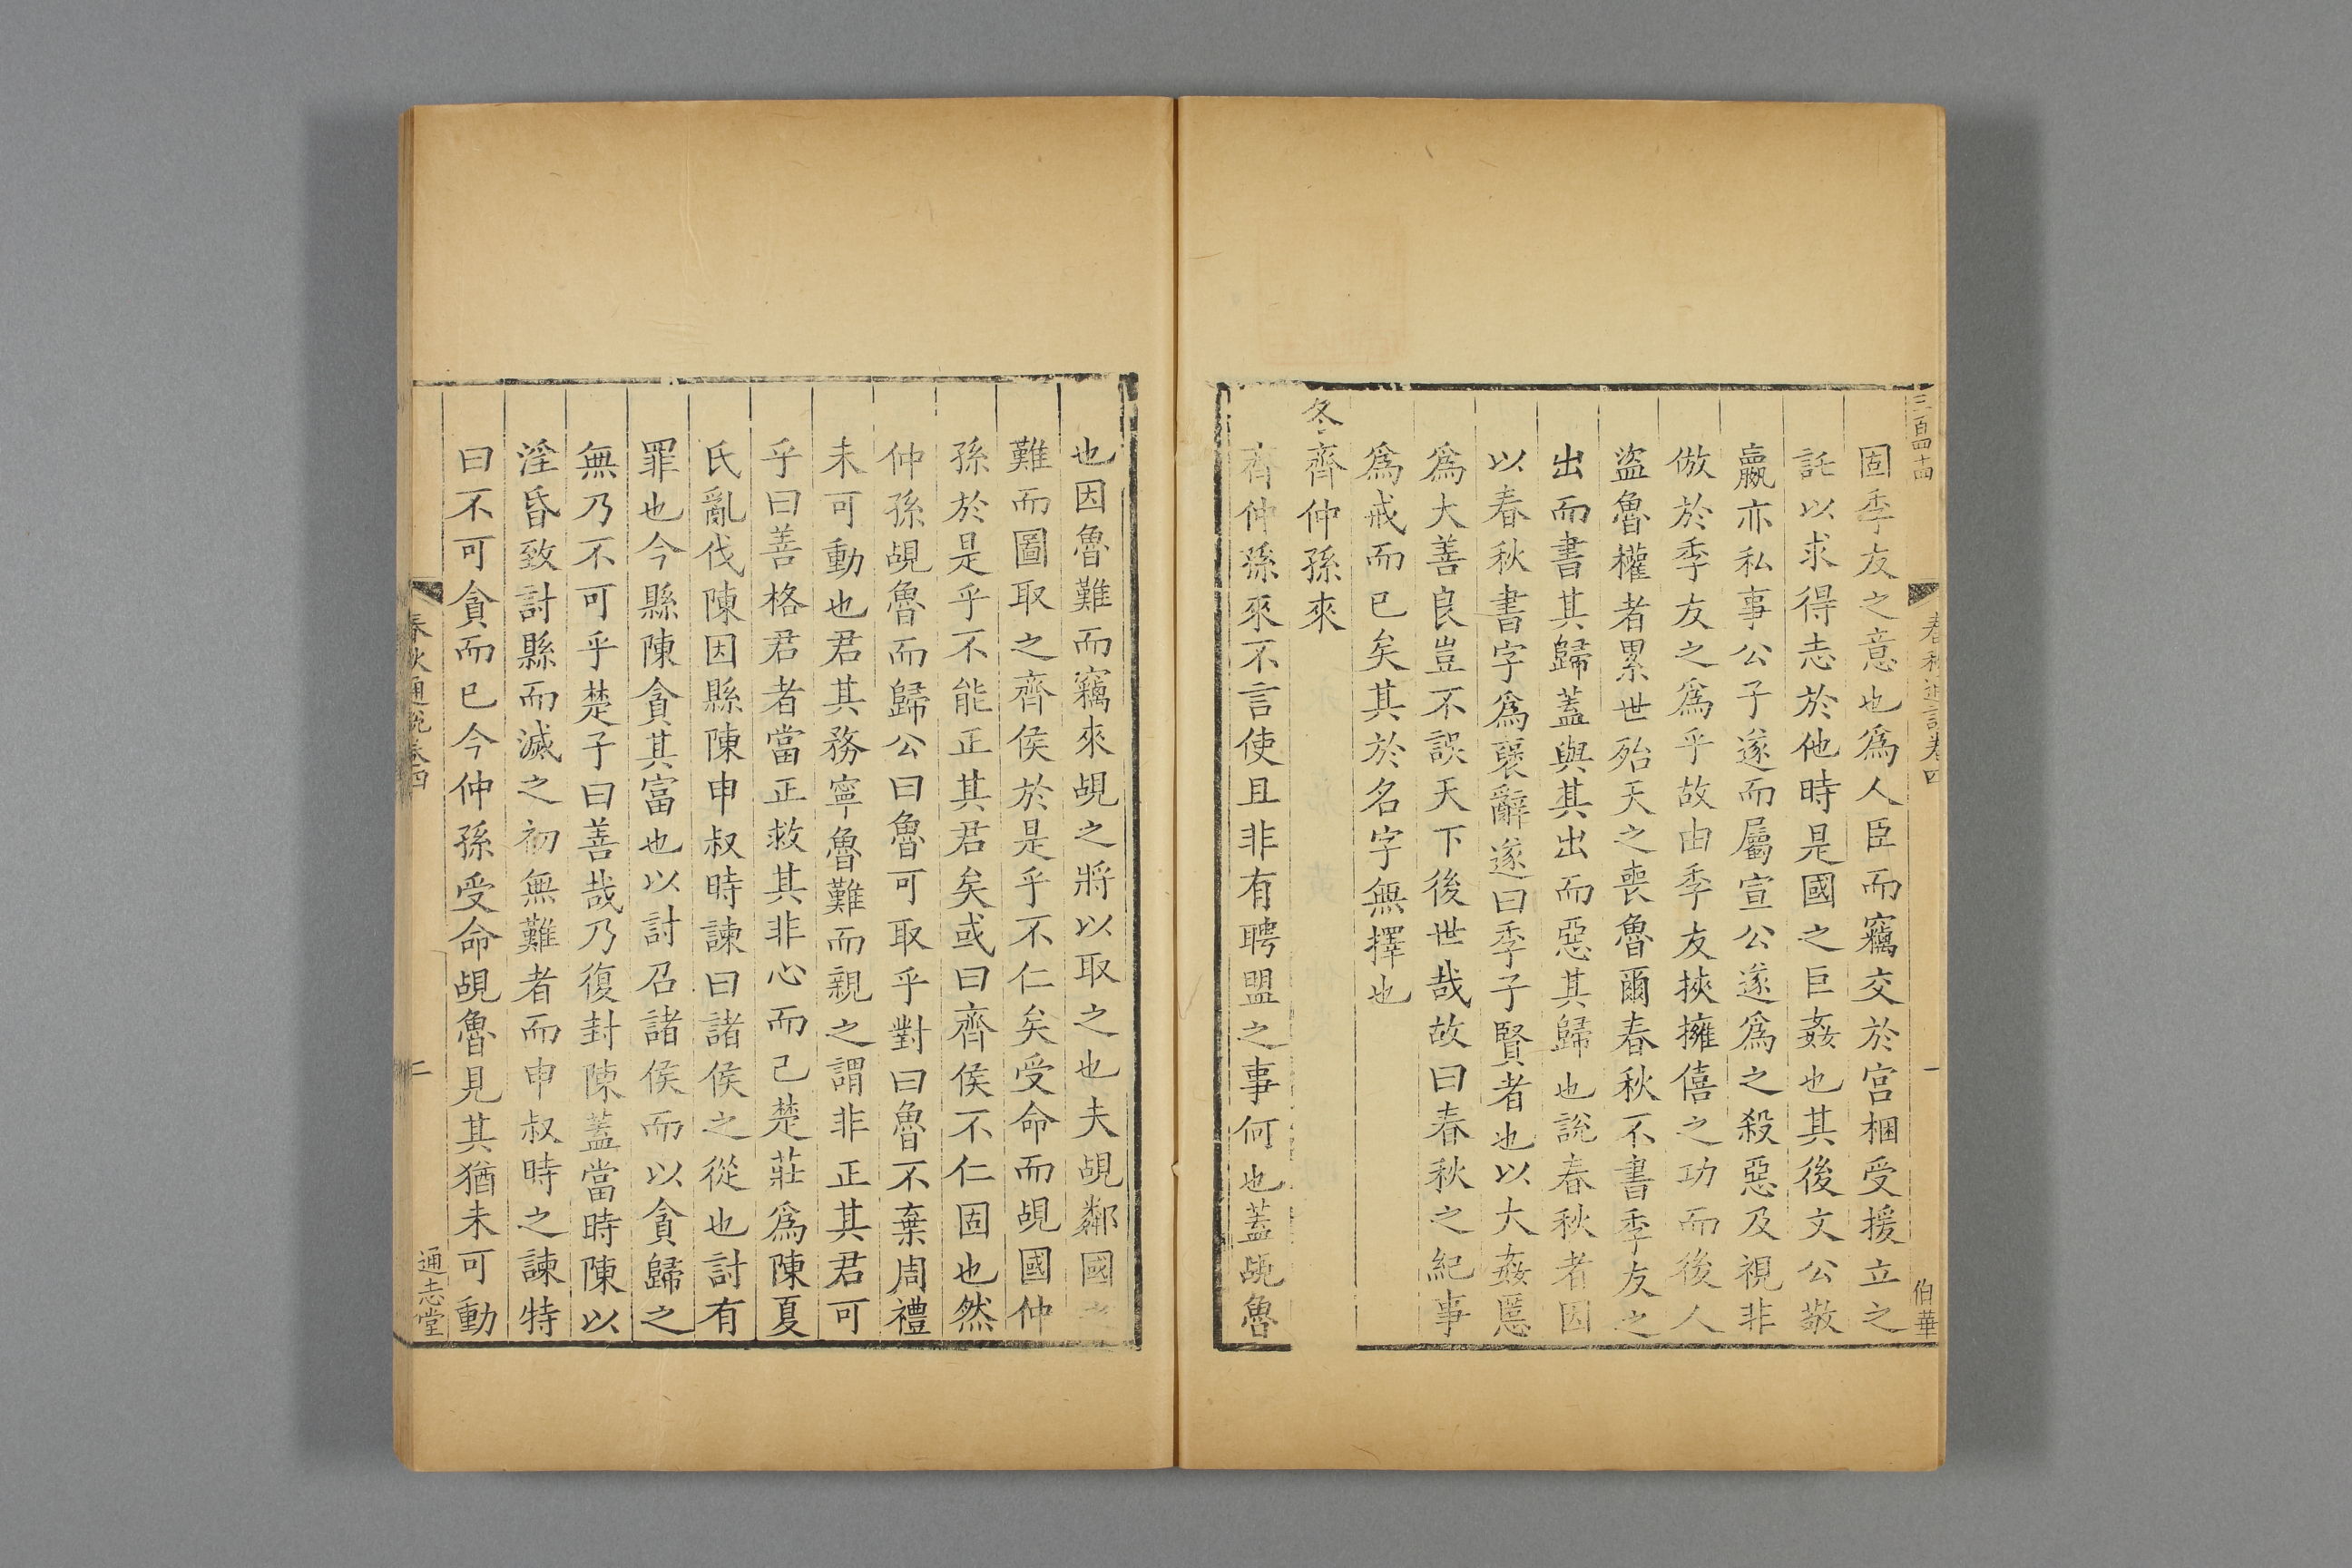 三百四十四
春秋通說卷四
一
伯華
固季友之意也爲人臣而竊交於宮梱受援立之
託以求得志於他時是國之巨姦也其後文公敬
嬴亦私事公子遂而屬宣公遂爲之殺惡及視非
倣於季友之爲乎故由季友挾擁僖之功而後人
盜魯權者累世殆天之喪魯爾春秋不書季友之
出而書其歸蓋與其出而惡其歸也說春秋者因
以春秋書字爲襃辭遂曰季子賢者也以大姦慝
爲大善良豈不誤天下後世哉故曰春秋之紀事
爲戒而已矣其於名字無擇也
冬齊仲孫來
齊仲孫來不言使且非有聘盟之事何也蓋覘魯
也因魯難而竊來覘之將以取之也夫覘鄰國
難而圖取之齊侯於是乎不仁矣受命而覘國仲
孫於是乎不能正其君矣或曰齊侯不仁固也然
仲孫覘魯而歸公曰魯可取乎對曰魯不棄周禮
未可動也君其務寧魯難而親之謂非正其君可
乎曰善格君者當正救其非心而已楚莊爲陳夏
氏亂伐陳因縣陳申叔時諫曰諸侯之從也討有
罪也今縣陳貪其富也以討召諸侯而以貪歸之
無乃不可乎楚子曰善哉乃復封陳蓋當時陳以
淫昏致討縣而滅之初無難者而申叔時之諫特
曰不可貪而已今仲孫受命覘魯見其猶未可動
春秋通說卷四
二
通志堂